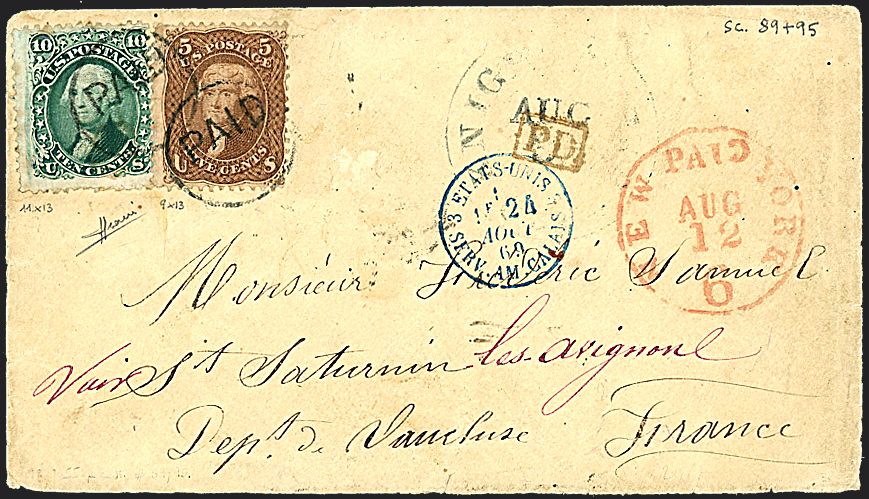 sc. 89+95
10 U.S. POSTAGE 10
TEN CENTS
U S
PAID
5 U.S. POSTAGE 5
FIVE CENTS
U S
PAID
11x13
9x13
AUG
PD
3 ETATS-UNIS
24
AOUT
69
SERV. AM. CALAIS
NEW YORK
PAID
AUG
12
6
Monsieur Frédéric Samuel
Voir St Saturnin les-avignon
Dept. de Vaucluse France